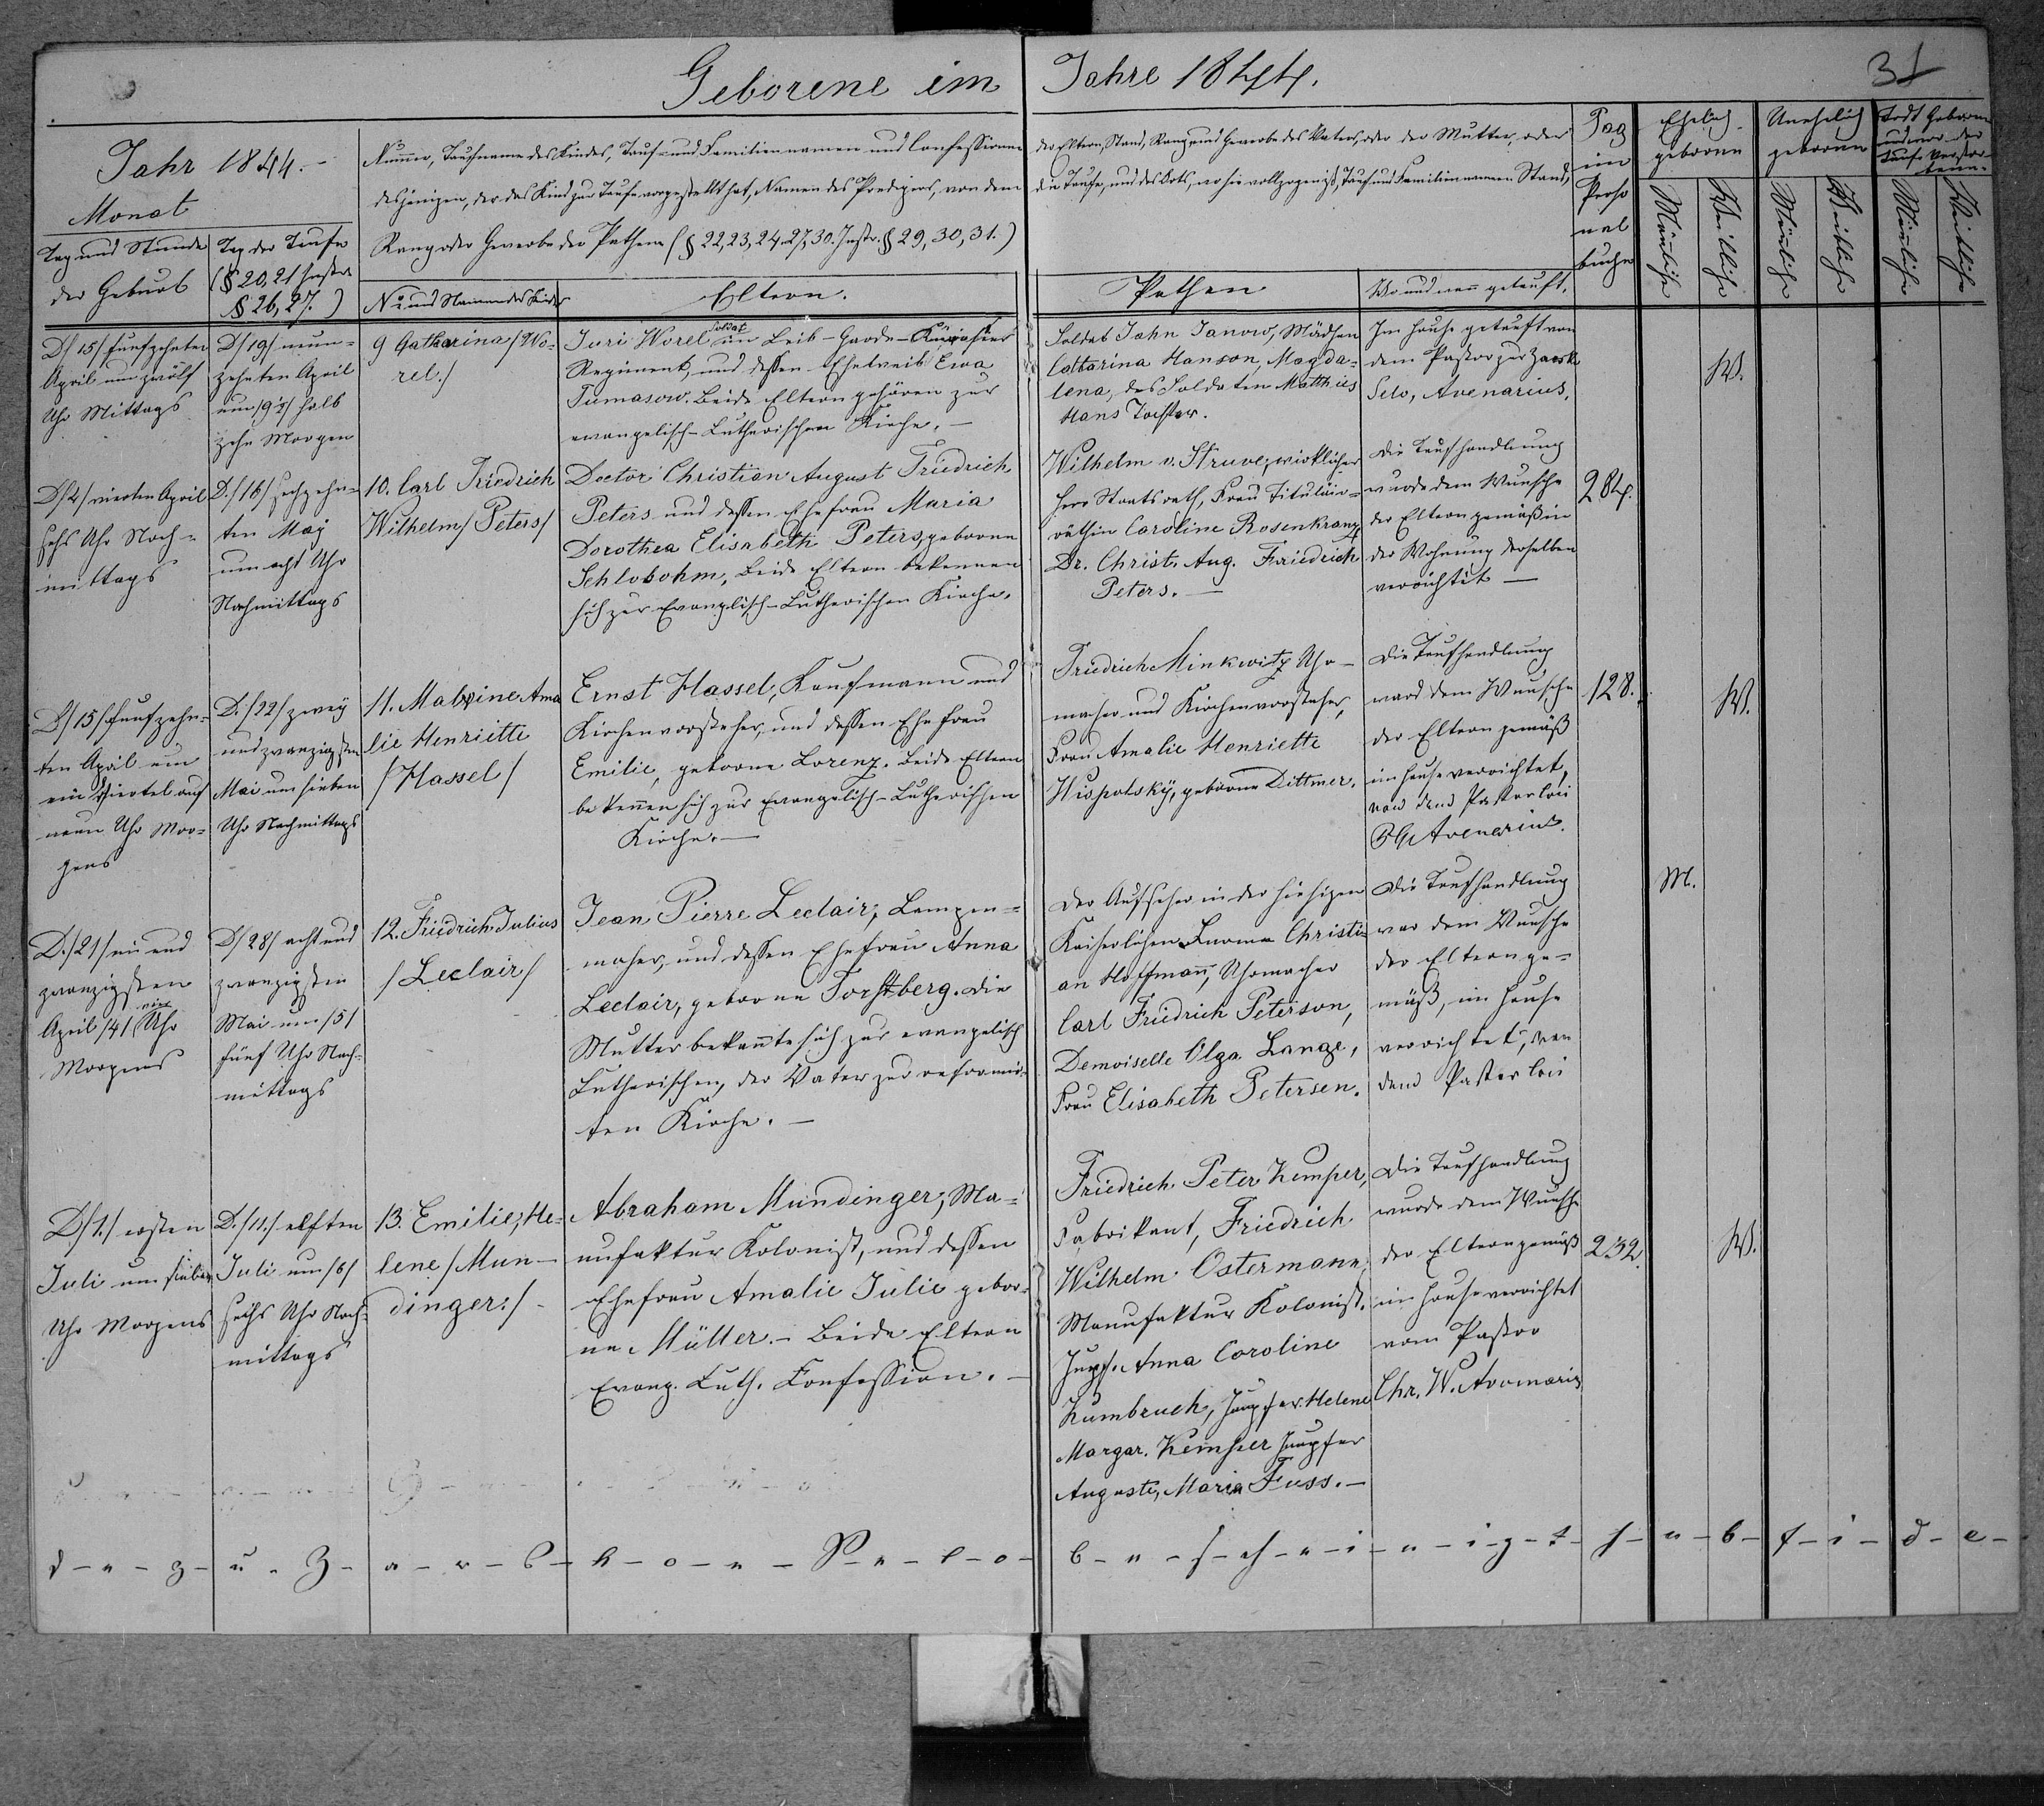 Geborene im Jahre 1844.
31
Jahr 1844.
Monat
Tag und Stunde
der Geburt
Tag der Taufe
(§ 20, 21 Instr.
§ 26, 27.)
Numer, Taufname des Kindes, Tauf- und Familiennamen und Confessionen
desjenigen, der das Kind zur Taufe vorgestellt hat, Namen des Predigers, von dem
Rang oder Gewerbe der Pathen (§ 22, 23, 24. 27, 30. Instr. § 29, 30, 31.)
No und Namen des Kindes
Eltern.
der Eltern, Stand, Rang und Gewerbe des Vaters, oder der Mutter, oder
die Taufe, und des Orts, wo sie vollzogen ist, Tauf und Familiennamen Stand,
Pathen
Wo und wenn getauft.
Pag
im
Perso
nal
buche
Ehelich
geborene
Unehelich
geborene
Todt Geborene
und vor der
Taufe Verstor-
bene
Mänliche
Weibliche
Mänliche
Weibliche
Mänliche
Weibliche
D/ 15/ funfzehnten
April um zwölf
Uhr Mittags
D/ 19/ neun-
zehnten April
um /9½/ halb
zehn Morgen
9 Catharina / Wo-
rel./
Juri Worel Soldat im Leib-Garde-Kürasier
Regiment, und dessen Eheweib Ewa
Tumasow. Beide Eltern gehören zur
evangelisch-Lutherischen Kirche. —
Soldat Jahn Janow, Mädchen
Catharina Hanson, Magda-
lena, des Soldaten Matthies
Hans Tochter.
Im Hause getauft von
dem Pastor zu Zarsk.
Selo, Avenarius.
W.
D/ 4/ vierten April
sechs Uhr Nach-
mittags
D./ 16/ sechzehn-
ten May
um acht Uhr
Nachmittags
10. Carl Friedrich
Wilhelm / Peters/
Doctor Christian August Friedrich
Peters und dessen Ehefrau Maria
Dorothea Elisabeth Peters, geborene
Schlobohm, Beide Eltern bekennen
sich zur Evanglisch-Lutherischen Kirche.
Wilhelm v. Struve, wirklicher
Herr Staatsrath, Frau Titulair-
räthin Caroline Rosenkranz
Dr. Christ. Aug. Friedrich
Peters. —
Die Taufhandlung
wurde dem Wunsche
der Eltern gemäß in
der Wohnung derselben
verrichtet —
284.
D/ 15/ funfzehn-
ten April um
ein Viertel auf
neun Uhr Mor-
gens
D./ 22/ zwey
und zwanzigsten
Mai um sieben
Uhr Nachmittags
11. Malvine Ama
lie Henriette
/ Hassel /
Ernst Hassel, Kaufmann und
Kirchenvorsteher, und dessen Ehefrau
Emilie, geborne Lorenz. Beide Eltern
bekennen sich zur Evangelisch-Lutherischen
Kirche. —
Friedrich Minkwitz Uhr-
macher und Kirchenvorsteher,
Frau Amalie Henriette
Wispolsky, geborne Dittmer.
Die Taufhandlung
ward dem Wunsche
der Eltern gemäß
im Hause verrichtet,
von dem Pastor loci
Avenarius.
128.
W.
D./ 21/ ein und
zwanzigsten
April /4/ vier Uhr
Morgens
D/ 28/ acht und
zwanzigsten
Mai um /5/
fünf Uhr Nach-
mittags
12. Friedrich Julius
/ Leclair /
Jean Pierre Leclair, Lampen-
macher, und dessen Ehefrau Anna
Leclair, geborne Forstberg. Die
Mutter bekennte sich zur evangelisch
Lutherischen, der Vater zur reformir-
ten Kirche. —
Der Aufseher in der hiesigen
Kaiserlichen Christi-
an Hoffmann, Uhrmacher
Carl Friedrich Peterson,
Demoiselle Olga Lange,
Frau Elisabeth Petersen.
Die Taufhandlung
war dem Wunsche
der Eltern ge-
mäß, im Hause
verrichtet, von
dem Pastor loci
M.
D/ 1./ ersten
Juli um sieben
Uhr Morgens
D./ 11./ elften
Juli um /6/
sechs Uhr Nach-
mittags
13. Emilie, He-
lene / Mun-
dinger:/
Abraham Mundinger, Ma-
nufaktur Kolonist, und dessen
Ehefrau Amalie Julie gebor-
ne Müller. — Beide Eltern
Evang. Luth. Confession. —
Friedrich Peter Kemper,
Fabrikant, Friedrich
Wilhelm Ostermann,
Manufaktur Kolonist,
Jungf. Anna Caroline
Kumbruch, Jungfer Helene
Margar. Kemper Jungfer
Auguste, Maria Fuss. —
Die Taufhandlung
wurde dem Wunsche
der Eltern gemäß
im Hause verrichtet
vom Pastor
Chr. W. Avenarius
232.
W.
d - e - z - u - Z - a - r - s - k - o - e - S - e - l - o - b - e - s - ch - e - i - n - i - g - t